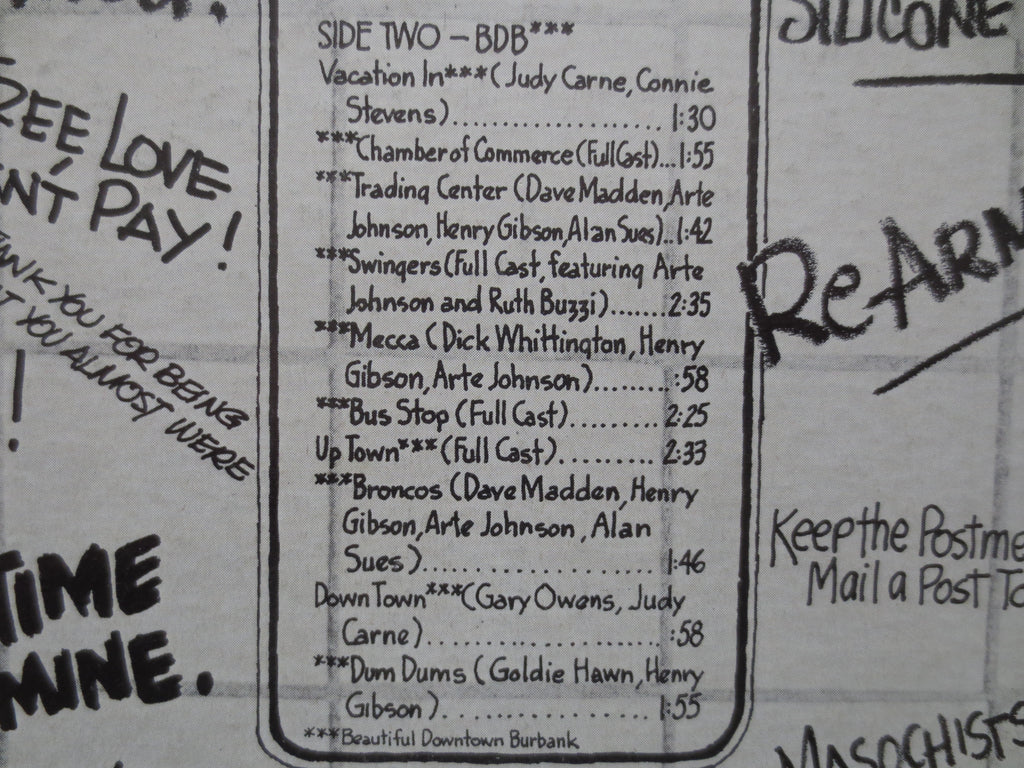 SILICONE
FREE LOVE
PAY!
YOU FOR BEING
YOU ALMOST WERE
!
TIME
MINE.
SIDE TWO - BDB***
Vacation In***(Judy Carne, Connie
Stevens)..................... 1:30
***Chamber of Commerce (Full Cast)...1:55
***Trading Center (Dave Madden, Arte
Johnson, Henry Gibson, Alan Sues)..1:42
***Swingers (Full Cast, featuring Arte
Johnson and Ruth Buzzi).......2:35
***Mecca (Dick Whittington, Henry
Gibson, Arte Johnson)........ :58
***Bus Stop (Full Cast)......... 2:25
Up Town***(Full Cast).......... 2:33
***Broncos (Dave Madden, Henry
Gibson, Arte Johnson, Alan
Sues)........................ 1:46
Down Town***(Gary Owens, Judy
Carne)....................... :58
***Dum Dums (Goldie Hawn, Henry
Gibson)..................... 1:55
***Beautiful Downtown Burbank
Keep the
Mail a Post
MASOCHISTS